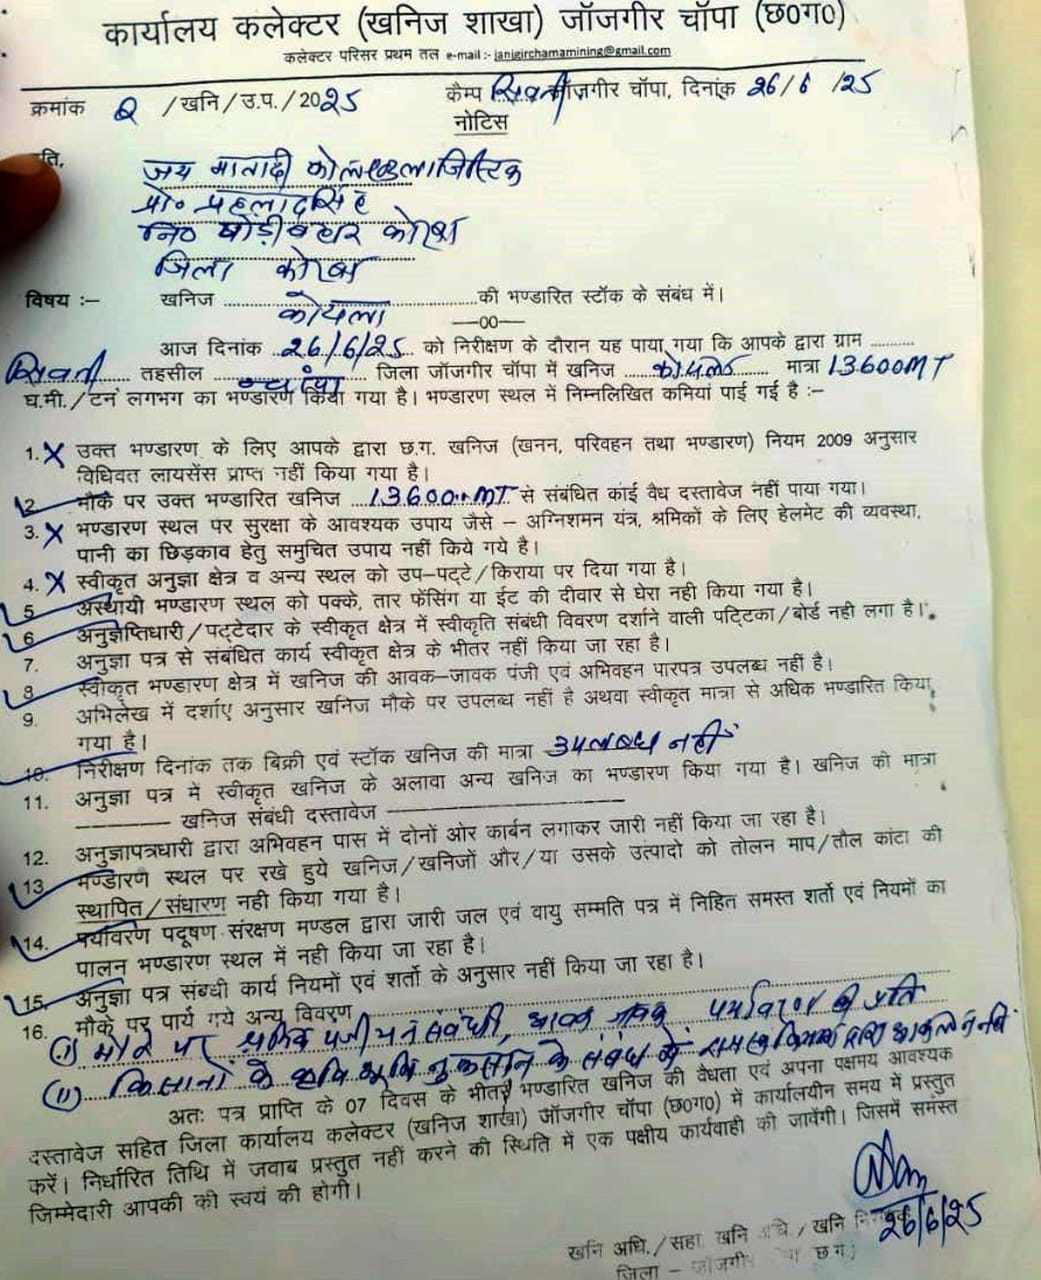 कार्यालय कलेक्टर (खनिज शाखा) जॉजगीर चॉपा (छ0ग0)
कलेक्टर परिसर प्रथम तल e-mail:- janjgirchamamining@gmail.com
क्रमांक 2 /खनि/उ.प./2025 कैम्प सिवनी जॉजगीर चॉपा, दिनांक 26/6/25
नोटिस
प्रति,
जय मातादी कोल लाजिस्टिक
प्रो॰ प्रहलाद सिंह
नि0 षोड़ीबहार कोरबा
जिला कोरबा
विषय :– खनिज कोयला की भण्डारित स्टॉक के संबंध में।
—00—
आज दिनांक 26/6/25 को निरीक्षण के दौरान यह पाया गया कि आपके द्वारा ग्राम
सिवनी तहसील चांपा जिला जॉजगीर चॉपा में खनिज कोयला मात्रा 13600MT
घ.मी./टन लगभग का भण्डारण किया गया है। भण्डारण स्थल में निम्नलिखित कमियां पाई गई है :–
1. X उक्त भण्डारण के लिए आपके द्वारा छ.ग. खनिज (खनन, परिवहन तथा भण्डारण) नियम 2009 अनुसार
विधिवत लायसेंस प्राप्त नहीं किया गया है।
2. मौके पर उक्त भण्डारित खनिज 13600 MT से संबंधित कोई वैध दस्तावेज नहीं पाया गया।
3. X भण्डारण स्थल पर सुरक्षा के आवश्यक उपाय जैसे – अग्निशमन यंत्र, श्रमिकों के लिए हेलमेट की व्यवस्था,
पानी का छिड़काव हेतु समुचित उपाय नहीं किये गये है।
4. X स्वीकृत अनुज्ञा क्षेत्र व अन्य स्थल को उप–पट्टे/किराया पर दिया गया है।
5. अस्थायी भण्डारण स्थल को पक्के, तार फेंसिंग या ईट की दीवार से घेरा नही किया गया है।
6. अनुज्ञप्तिधारी/पट्टेदार के स्वीकृत क्षेत्र में स्वीकृति संबंधी विवरण दर्शाने वाली पट्टिका/बोर्ड नही लगा है।
7. अनुज्ञा पत्र से संबंधित कार्य स्वीकृत क्षेत्र के भीतर नहीं किया जा रहा है।
8. स्वीकृत भण्डारण क्षेत्र में खनिज की आवक–जावक पंजी एवं अभिवहन पारपत्र उपलब्ध नहीं है।
9. अभिलेख में दर्शाए अनुसार खनिज मौके पर उपलब्ध नहीं है अथवा स्वीकृत मात्रा से अधिक भण्डारित किया
गया है।
10. निरीक्षण दिनांक तक बिक्री एवं स्टॉक खनिज की मात्रा उपलब्ध नहीं
11. अनुज्ञा पत्र में स्वीकृत खनिज के अलावा अन्य खनिज का भण्डारण किया गया है। खनिज की मात्रा
खनिज संबंधी दस्तावेज
12. अनुज्ञापत्रधारी द्वारा अभिवहन पास में दोनों ओर कार्बन लगाकर जारी नहीं किया जा रहा है।
13. भण्डारण स्थल पर रखे हुये खनिज/खनिजों और/या उसके उत्पादो को तोलन माप/तौल कांटा की
स्थापित/संधारण नही किया गया है।
14. पर्यावरण पदूषण संरक्षण मण्डल द्वारा जारी जल एवं वायु सम्मति पत्र में निहित समस्त शर्तो एवं नियमों का
पालन भण्डारण स्थल में नही किया जा रहा है।
15. अनुज्ञा पत्र संबधी कार्य नियमों एवं शर्तो के अनुसार नहीं किया जा रहा है।
16. मौके पर पाये गये अन्य विवरण
(i) मौके पर श्रमिक पंजीयन संबंधी, पर्यावरण की प्रति
(ii) किसानों के कृषि भूमि नुकसान के संबंध में
अतः पत्र प्राप्ति के 07 दिवस के भीतर भण्डारित खनिज की वैधता एवं अपना पक्षमय आवश्यक
दस्तावेज सहित जिला कार्यालय कलेक्टर (खनिज शाखा) जॉजगीर चॉपा (छ0ग0) में कार्यालयीन समय में प्रस्तुत
करें। निर्धारित तिथि में जवाब प्रस्तुत नहीं करने की स्थिति में एक पक्षीय कार्यवाही की जावेंगी। जिसमें समस्त
जिम्मेदारी आपकी की स्वयं की होगी।
26/6/25
खनि अधि./सहा खनि अधि/खनि
जिला – जॉजगीर छ ग.)